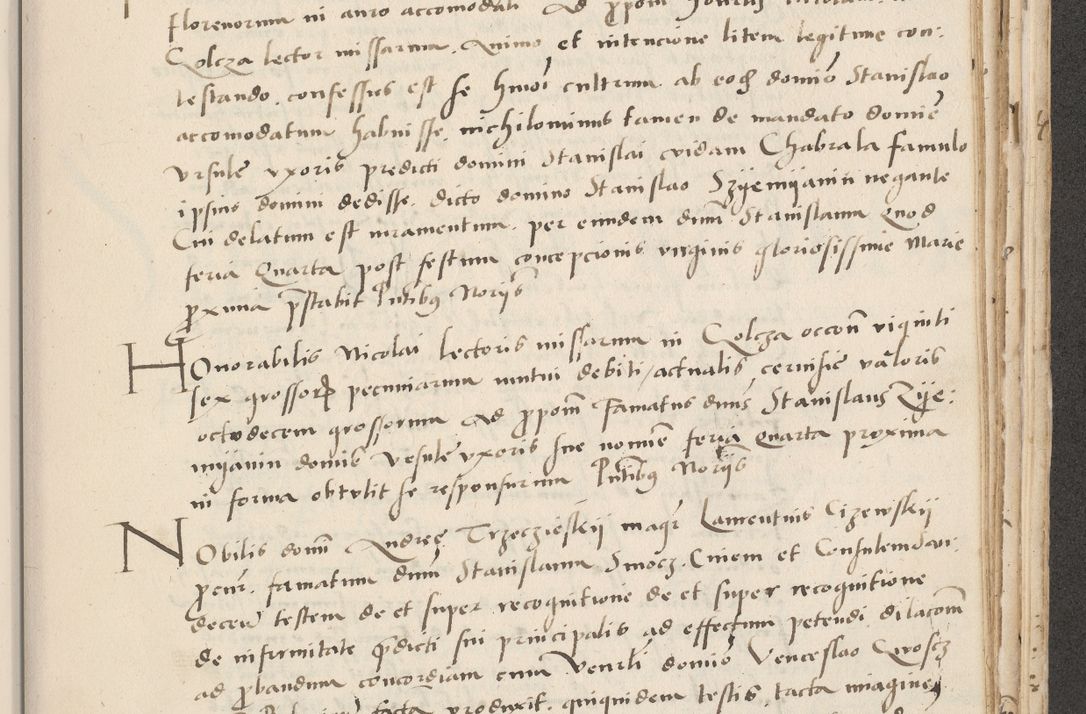 florenorum in auro accomodati Ad ppom
Golcza lector missarum. Animo et intencione litem legitime con:
testando. confessus est se hmoi cultrum ab eod domio Stanislao
accomodatum habuisse, nichilominus tamen de mandato domie
Ursule uxoris predicti domini Stanislai cuidam Chabrala famulo
ipsius domini dedisse. dicto domino Stanislao Szyemyanin negante
Cui delatum est iuramentum. per eundem dnm Stanislaum Quod
feria Quarta post festum concepcionis virginis gloriosissime Marie
proxima prestabit Pntibus Noriis
HOnorabilis Nicolai lectoris missarum in Golcza occon viginti
sex grossor pecuniarum mutui debiti / actualis cervisie valoris
octodecem grossorum Ad ppom Famatus dnus Stanislaus Zye:
myanin domie Ursule uxoris sue nomie feria Quarta proxima
in forma obtulit se responsurum Pntibus Noriis
NObilis domi Andree Trzeczieskij magr Laurentius Cizewskij
pcur. famatum dnm Stanislaum Smocz. Civem et Consulem
decen testem de et super recognitione de et super recognitione
de infirmitate pdicti sui principalis ad effectum petendi dilacom
ad pbandum concordiam cum Venrli domio Venceslao
facta produxit. quiquidem testis tacta imagine